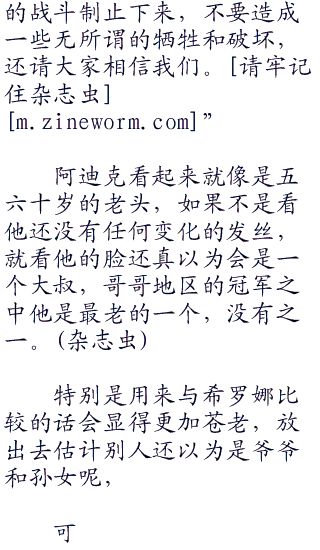 的战斗制止下来，不要造成
一些无所谓的牺牲和破坏，
还请大家相信我们。[请牢记
住杂志虫]
[m.zineworm.com]”
阿迪克看起来就像是五
六十岁的老头，如果不是看
他还没有任何变化的发丝，
就看他的脸还真以为会是一
个大叔，哥哥地区的冠军之
中他是最老的一个，没有之
一。(杂志虫)
特别是用来与希罗娜比
较的话会显得更加苍老，放
出去估计别人还以为是爷爷
和孙女呢，
可